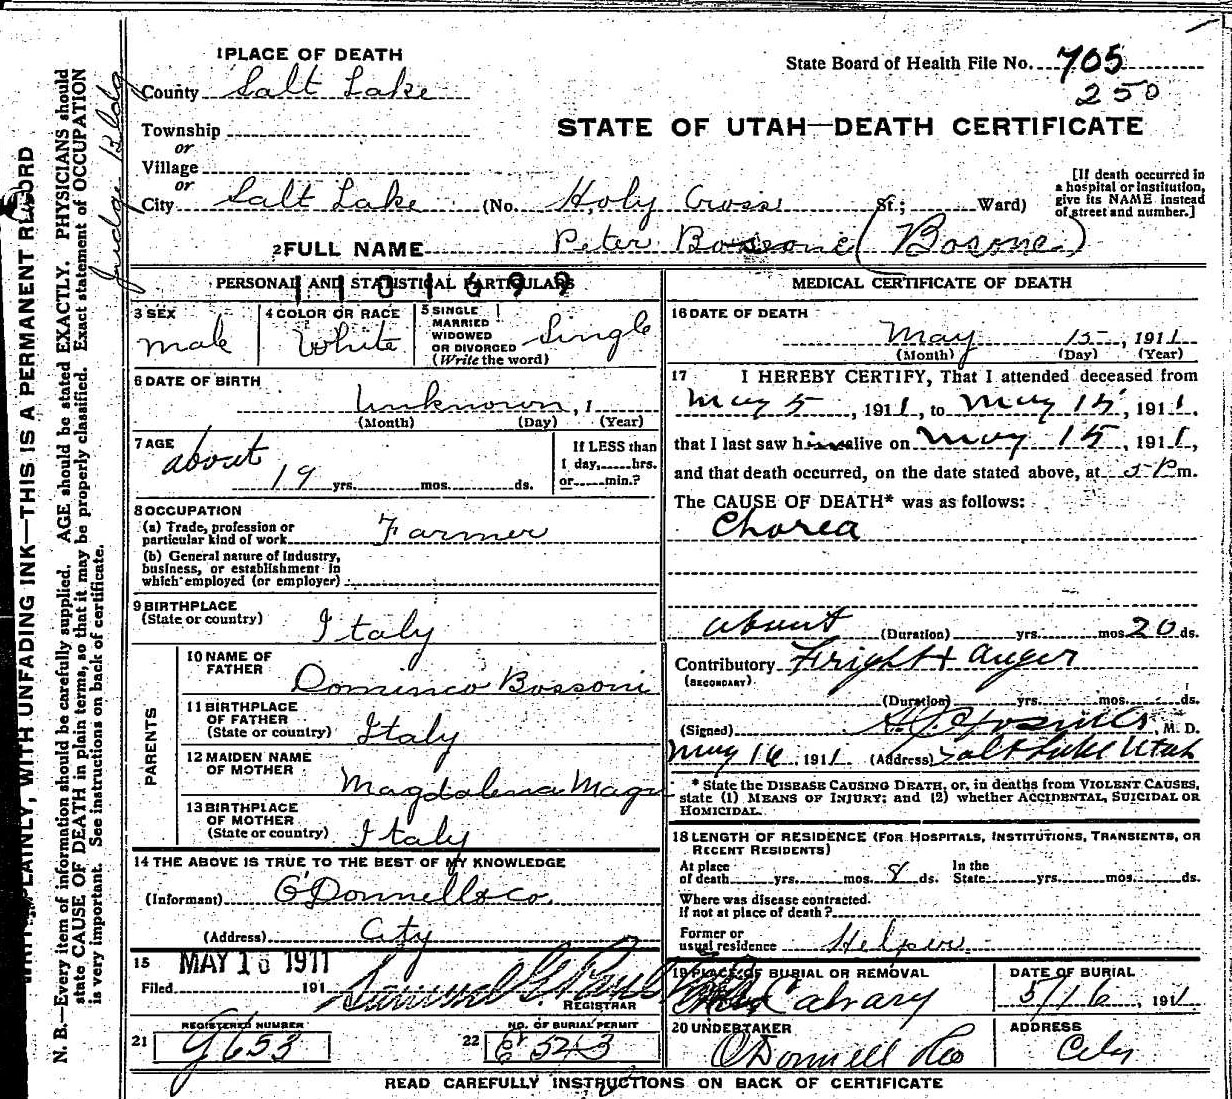 1 PLACE OF DEATH
County Salt Lake
Township
or
Village
or
City Salt Lake (No. Holy Cross St.; Ward)
State Board of Health File No. 705
250
STATE OF UTAH—DEATH CERTIFICATE
[If death occurred in
a hospital or institution,
give its NAME instead
of street and number.]
2 FULL NAME Peter Bossone (Bosone)
1101699
PERSONAL AND STATISTICAL PARTICULARS
3 SEX
male
4 COLOR OR RACE
White
5 SINGLE
MARRIED
WIDOWED
OR DIVORCED
(Write the word)
Single
6 DATE OF BIRTH
Unknown, 1
(Month) (Day) (Year)
7 AGE
about 19 yrs. mos. ds.
If LESS than
1 day, hrs.
or min.?
8 OCCUPATION
(a) Trade, profession or
particular kind of work Farmer
(b) General nature of industry,
business, or establishment in
which employed (or employer)
9 BIRTHPLACE
(State or country) Italy
PARENTS
10 NAME OF
FATHER
Dominico Bossoni
11 BIRTHPLACE
OF FATHER
(State or country) Italy
12 MAIDEN NAME
OF MOTHER
Magdalena Magri
13 BIRTHPLACE
OF MOTHER
(State or country) Italy
14 THE ABOVE IS TRUE TO THE BEST OF MY KNOWLEDGE
(Informant) O'Donnell & Co.
(Address) City
15 MAY 16 1911
Filed 191
REGISTRAR
21 REGISTERED NUMBER
G653
22 NO. OF BURIAL PERMIT
543
MEDICAL CERTIFICATE OF DEATH
16 DATE OF DEATH
May 15, 1911
(Month) (Day) (Year)
17 I HEREBY CERTIFY, That I attended deceased from
May 5, 1911, to May 15, 1911,
that I last saw him alive on May 15, 1911,
and that death occurred, on the date stated above, at 5 P m.
The CAUSE OF DEATH* was as follows:
Chorea
about (Duration) yrs. mos. 20 ds.
Contributory Fright & Anger
(SECONDARY)
(Duration) yrs. mos. ds.
(Signed) M. D.
May 16 1911 (Address) Salt Lake Utah
* State the DISEASE CAUSING DEATH, or, in deaths from VIOLENT CAUSES,
state (1) MEANS OF INJURY; and (2) whether ACCIDENTAL, SUICIDAL OR
HOMICIDAL.
18 LENGTH OF RESIDENCE (FOR HOSPITALS, INSTITUTIONS, TRANSIENTS, OR
RECENT RESIDENTS)
At place
of death yrs. mos. 8 ds.
In the
State yrs. mos. ds.
Where was disease contracted.
If not at place of death?
Former or
usual residence Helper
19 PLACE OF BURIAL OR REMOVAL
Calvary
DATE OF BURIAL
5/16, 1911
20 UNDERTAKER
O'Donnell & Co
ADDRESS
City
READ CAREFULLY INSTRUCTIONS ON BACK OF CERTIFICATE
WRITE PLAINLY, WITH UNFADING INK—THIS IS A PERMANENT RECORD
N. B.—Every item of information should be carefully supplied. AGE should be stated EXACTLY. PHYSICIANS should
state CAUSE OF DEATH in plain terms, so that it may be properly classified. Exact statement of OCCUPATION
is very important. See instructions on back of certificate.
Judge Bldg